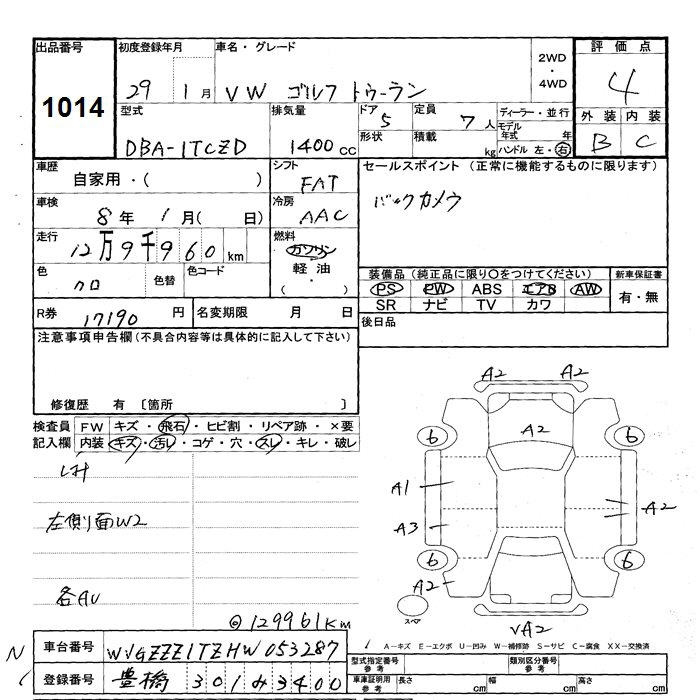 出品番号 初度登録年月 車名・グレード 2WD・4WD 評価点
1014 29 1月 VW ゴルフ トゥーラン 4
型式 排気量 ドア 定員 ディーラー・並行 外装 内装
DBA-1TCZD 1400cc 5 7人 モデル年式 年 B C
形状 積載 kg ハンドル 左・右
車歴 シフト セールスポイント (正常に機能するものに限ります)
自家用・( ) FAT
車検 冷房 バックカメラ
8年 1月( 日) AAC
走行 燃料
12万9千960km ガソリン
色 色替 色コード 軽油 装備品 (純正品に限り○をつけてください) 新車保証書
クロ ・( ) PS PW ABS エアB AW 有・無
SR ナビ TV カワ
R券 17190円 名変期限 月 日 後日品
注意事項申告欄 (不具合内容等は具体的に記入して下さい)
修復歴 有 〔箇所 〕
検査員 FW キズ・飛石・ヒビ割・リペア跡・×要
記入欄 内装 キズ・汚レ・コゲ・穴・スレ・キレ・破レ
左側面W2
各AU
◎129961Km
A2 A2
A2
6 6
A1 A2
A3
6 6
A2
スペア
VA2
A-キズ E-エクボ U-凹み W-補修跡 S-サビ C-腐食 XX-交換済
車台番号 WVGZZZ1TZHW053287
登録番号 豊橋 301み3400
型式指定番号 参考 類別区分番号 参考
車庫証明用 参考 長さ cm 幅 cm 高さ cm